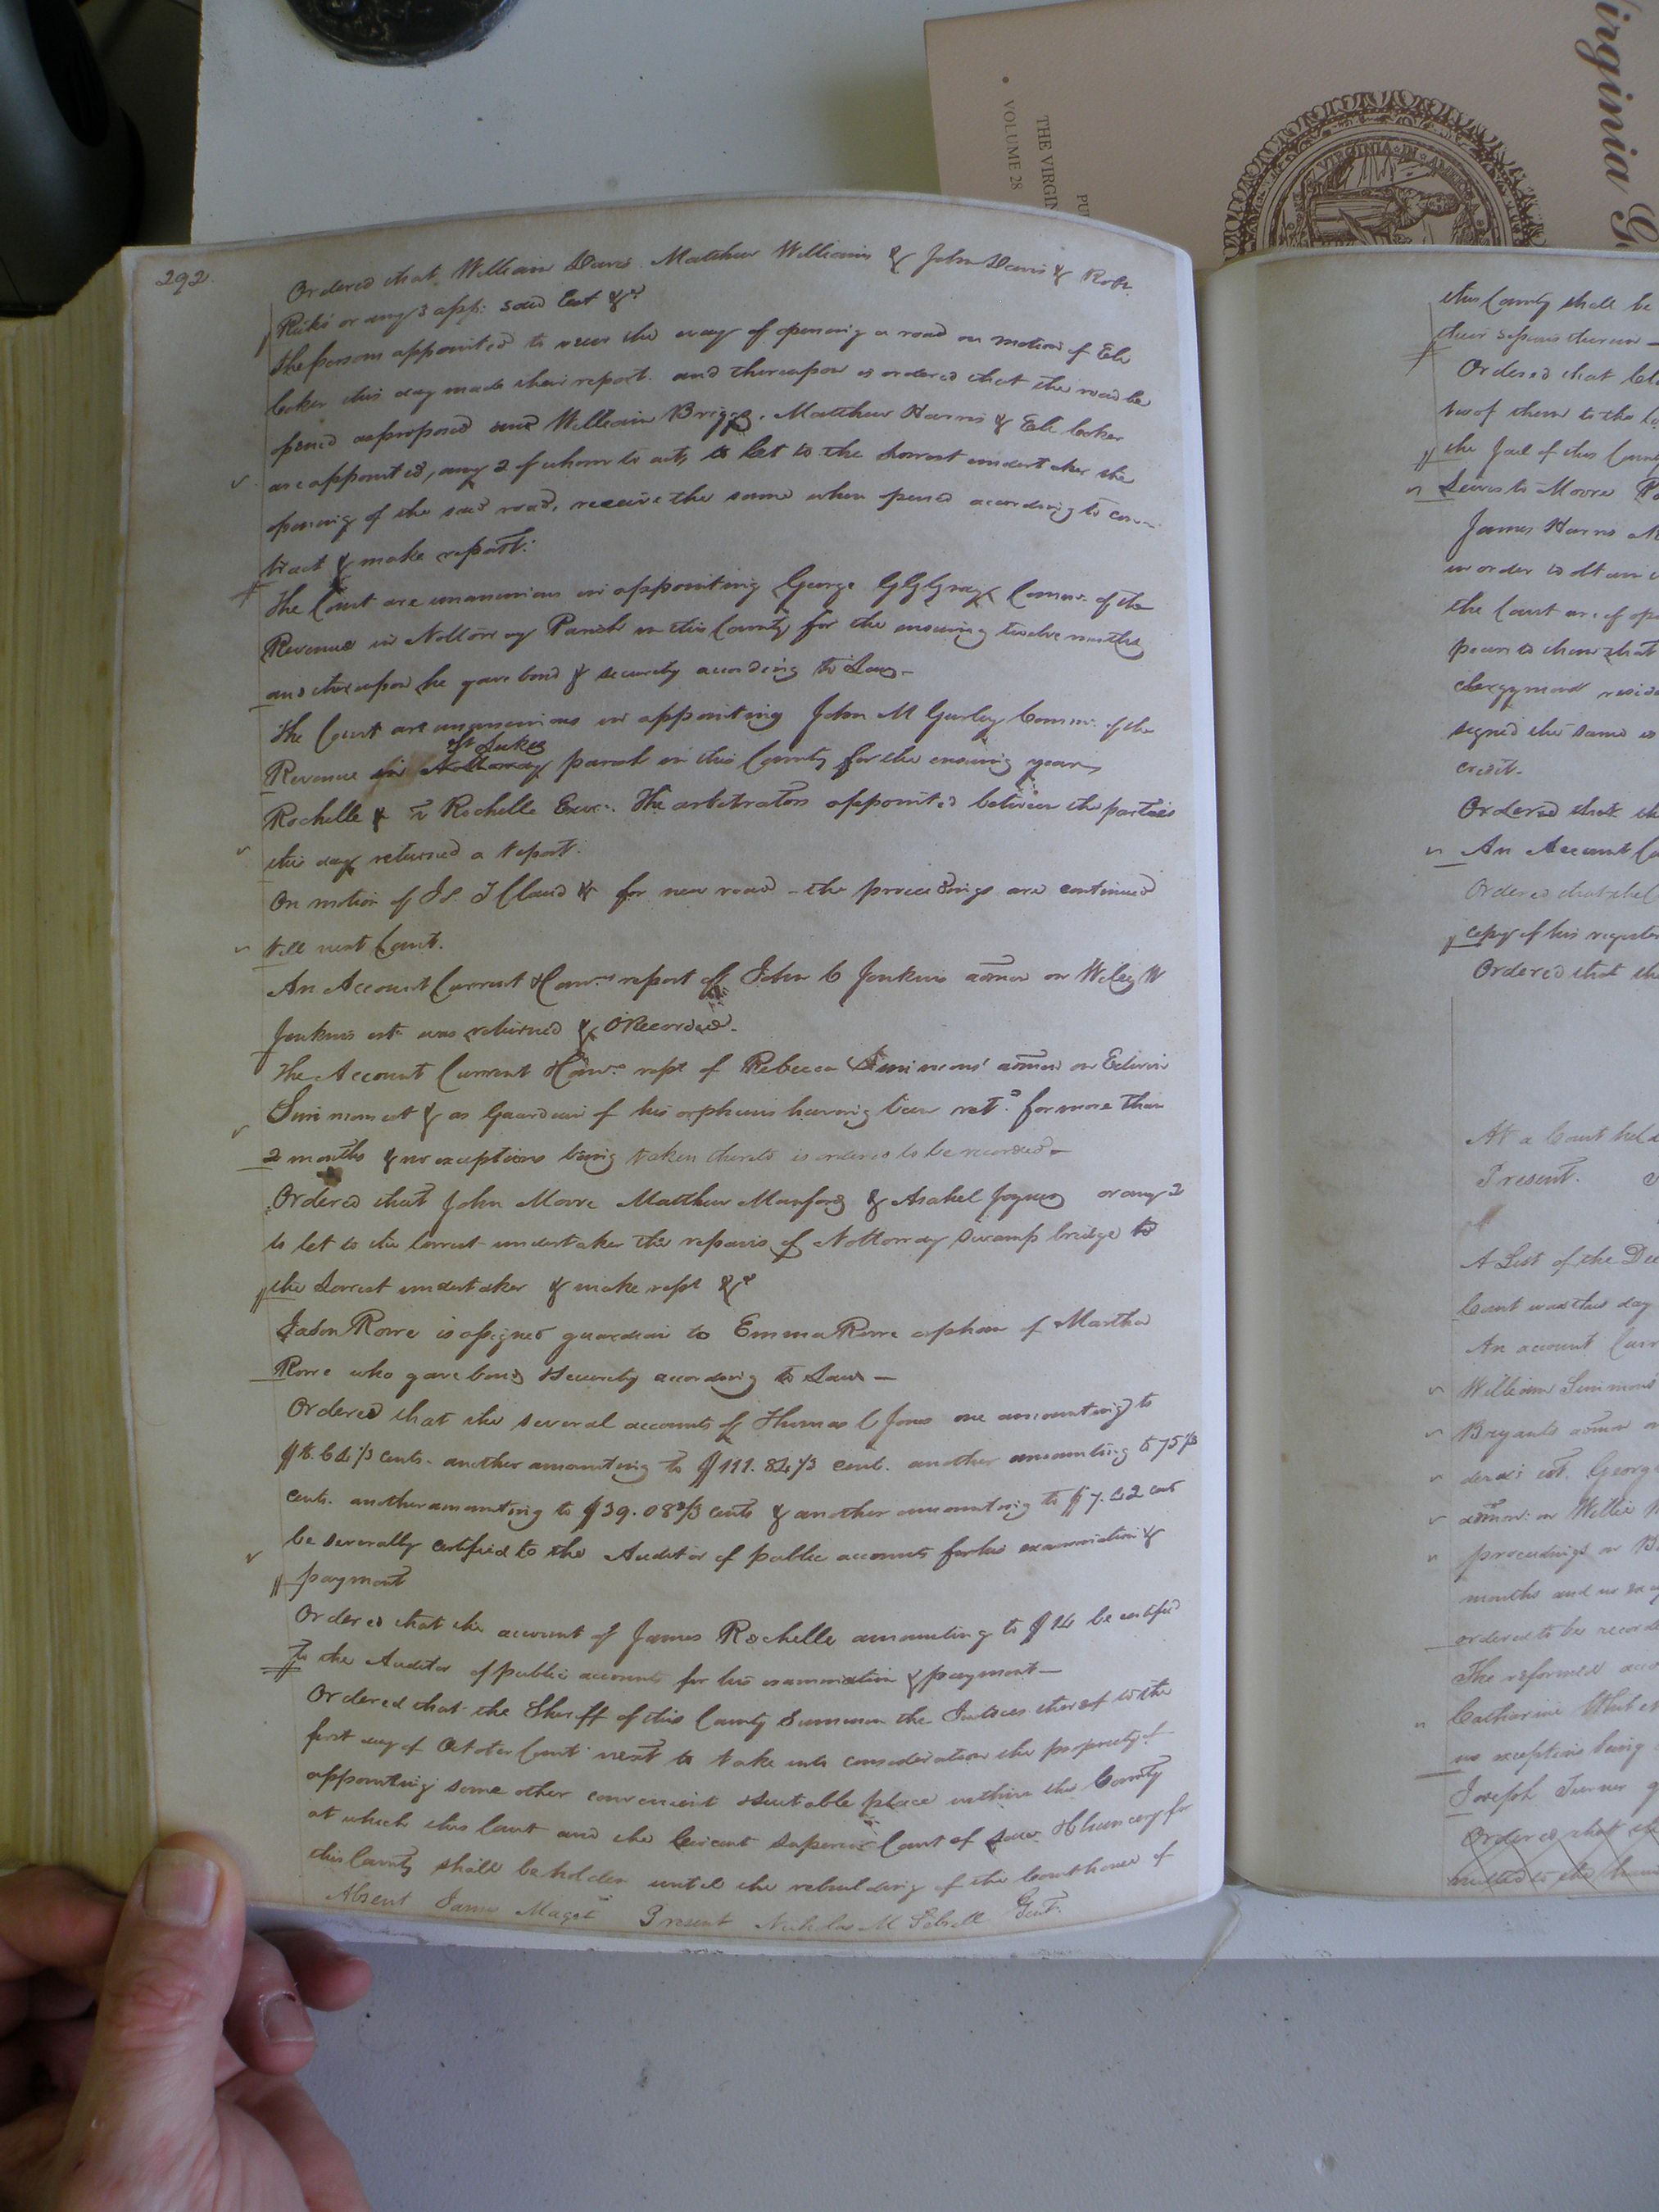 Virginia
THE VIRGIN
VOLUME 28
VIRGINIA IN
292
Ordered that William Davis Matthew Williams & John Davis & Robt.
Ricks or any 3 app: said Est &c
The persons appointed to view the way of opening a road on motion of Eli
Coker this day made their report. and thereupon is ordered that the road be
opened as proposed and William Briggs, Matthew Harris & Eli Coker
are appointed, any 2 of whom to act, to let to the lowest undertaker the
opening of the said road, receive the same when opened according to con-
tract & make report:
The Court are unanimous in appointing George G G Gray Commr. of the
Revenue in Nottoway Parish in this County for the ensuing twelve months
and thereupon he gave bond & security according to Law-
The Court are unanimous in appointing John M Gurley Commr. of the
St Lukes
Revenue in Nottoway parish in this County for the ensuing year
Rochelle & vs Rochelle Exor. The arbitrators appointed between the parties
this day returned a report.
On motion of for new road - the proceedings are continued
till next Court.
An Account Current & Comrs. report of John C Jenkins admor on Wiley W
Jenkins est was returned & O Recorded.
The Account Current & Comrs. rept of Rebecca Simmons' admon on Edwin
Simmons est & as Guardian of his orphans having been retd. for more than
2 months & no exceptions being taken thereto is ordered to be recorded-
Ordered that John Moore Matthew Munford & Asahel Joyner or any 2
to let to the lowest undertaker the repairs of Nottoway Swamp bridge to
the lowest undertaker & make rept &c
Jason Rowe is assigned guardian to Emma Rowe orphan of Martha
Rowe who gave bond & security according to Law -
Ordered that the several accounts of Thomas C Jones one amounting to
cents. another amounting to $111. 82 1/3 cent. another amounting to 75
cents. another amounting to $39. 08 2/3 cents & another amounting to $7. 42 cent
be severally certified to the Auditor of public accounts for his examination &
payment
Ordered that the account of James Rochelle amounting to $14 be certified
to the Auditor of public accounts for his examination & payment-
Ordered that the Sheriff of this County Summon the Justices thereof to the
first day of October Court next to take into consideration the propriety of
appointing some other convenient & suitable place within this County
at which this Court and the Circuit Superior Court of Law & Chancery for
this County shall be holden until the rebuilding of the Courthouse of
Absent James Maget Present Nicholas M Sebrell Gent.
this County shall be
their sessions therein -
Ordered that
two of them to the
the Jail of this County
Lewis to Moore
James Harris
in order to obtain
the Court are of
pear to them that
clergyman
signed the same is
credit.
Ordered that the
An Account
Ordered that
copy of his register
Ordered that the
At a Court held
Present.
A List of the
Court was this day
An account Curr
William Simmons'
Bryants admor
est. George
admor: on Willie
proceedings on
months and no
ordered to be recorde
The reformed acco
Catharine
no exceptions being
Joseph Turner
Ordered that the